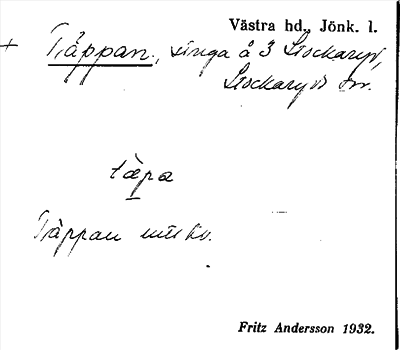 Västra hd., Jönk. l.
+ Täppan, änga å 3 Stockaryd,
Stockaryds sn.
täpa
Täppan
Fritz Andersson 1932.